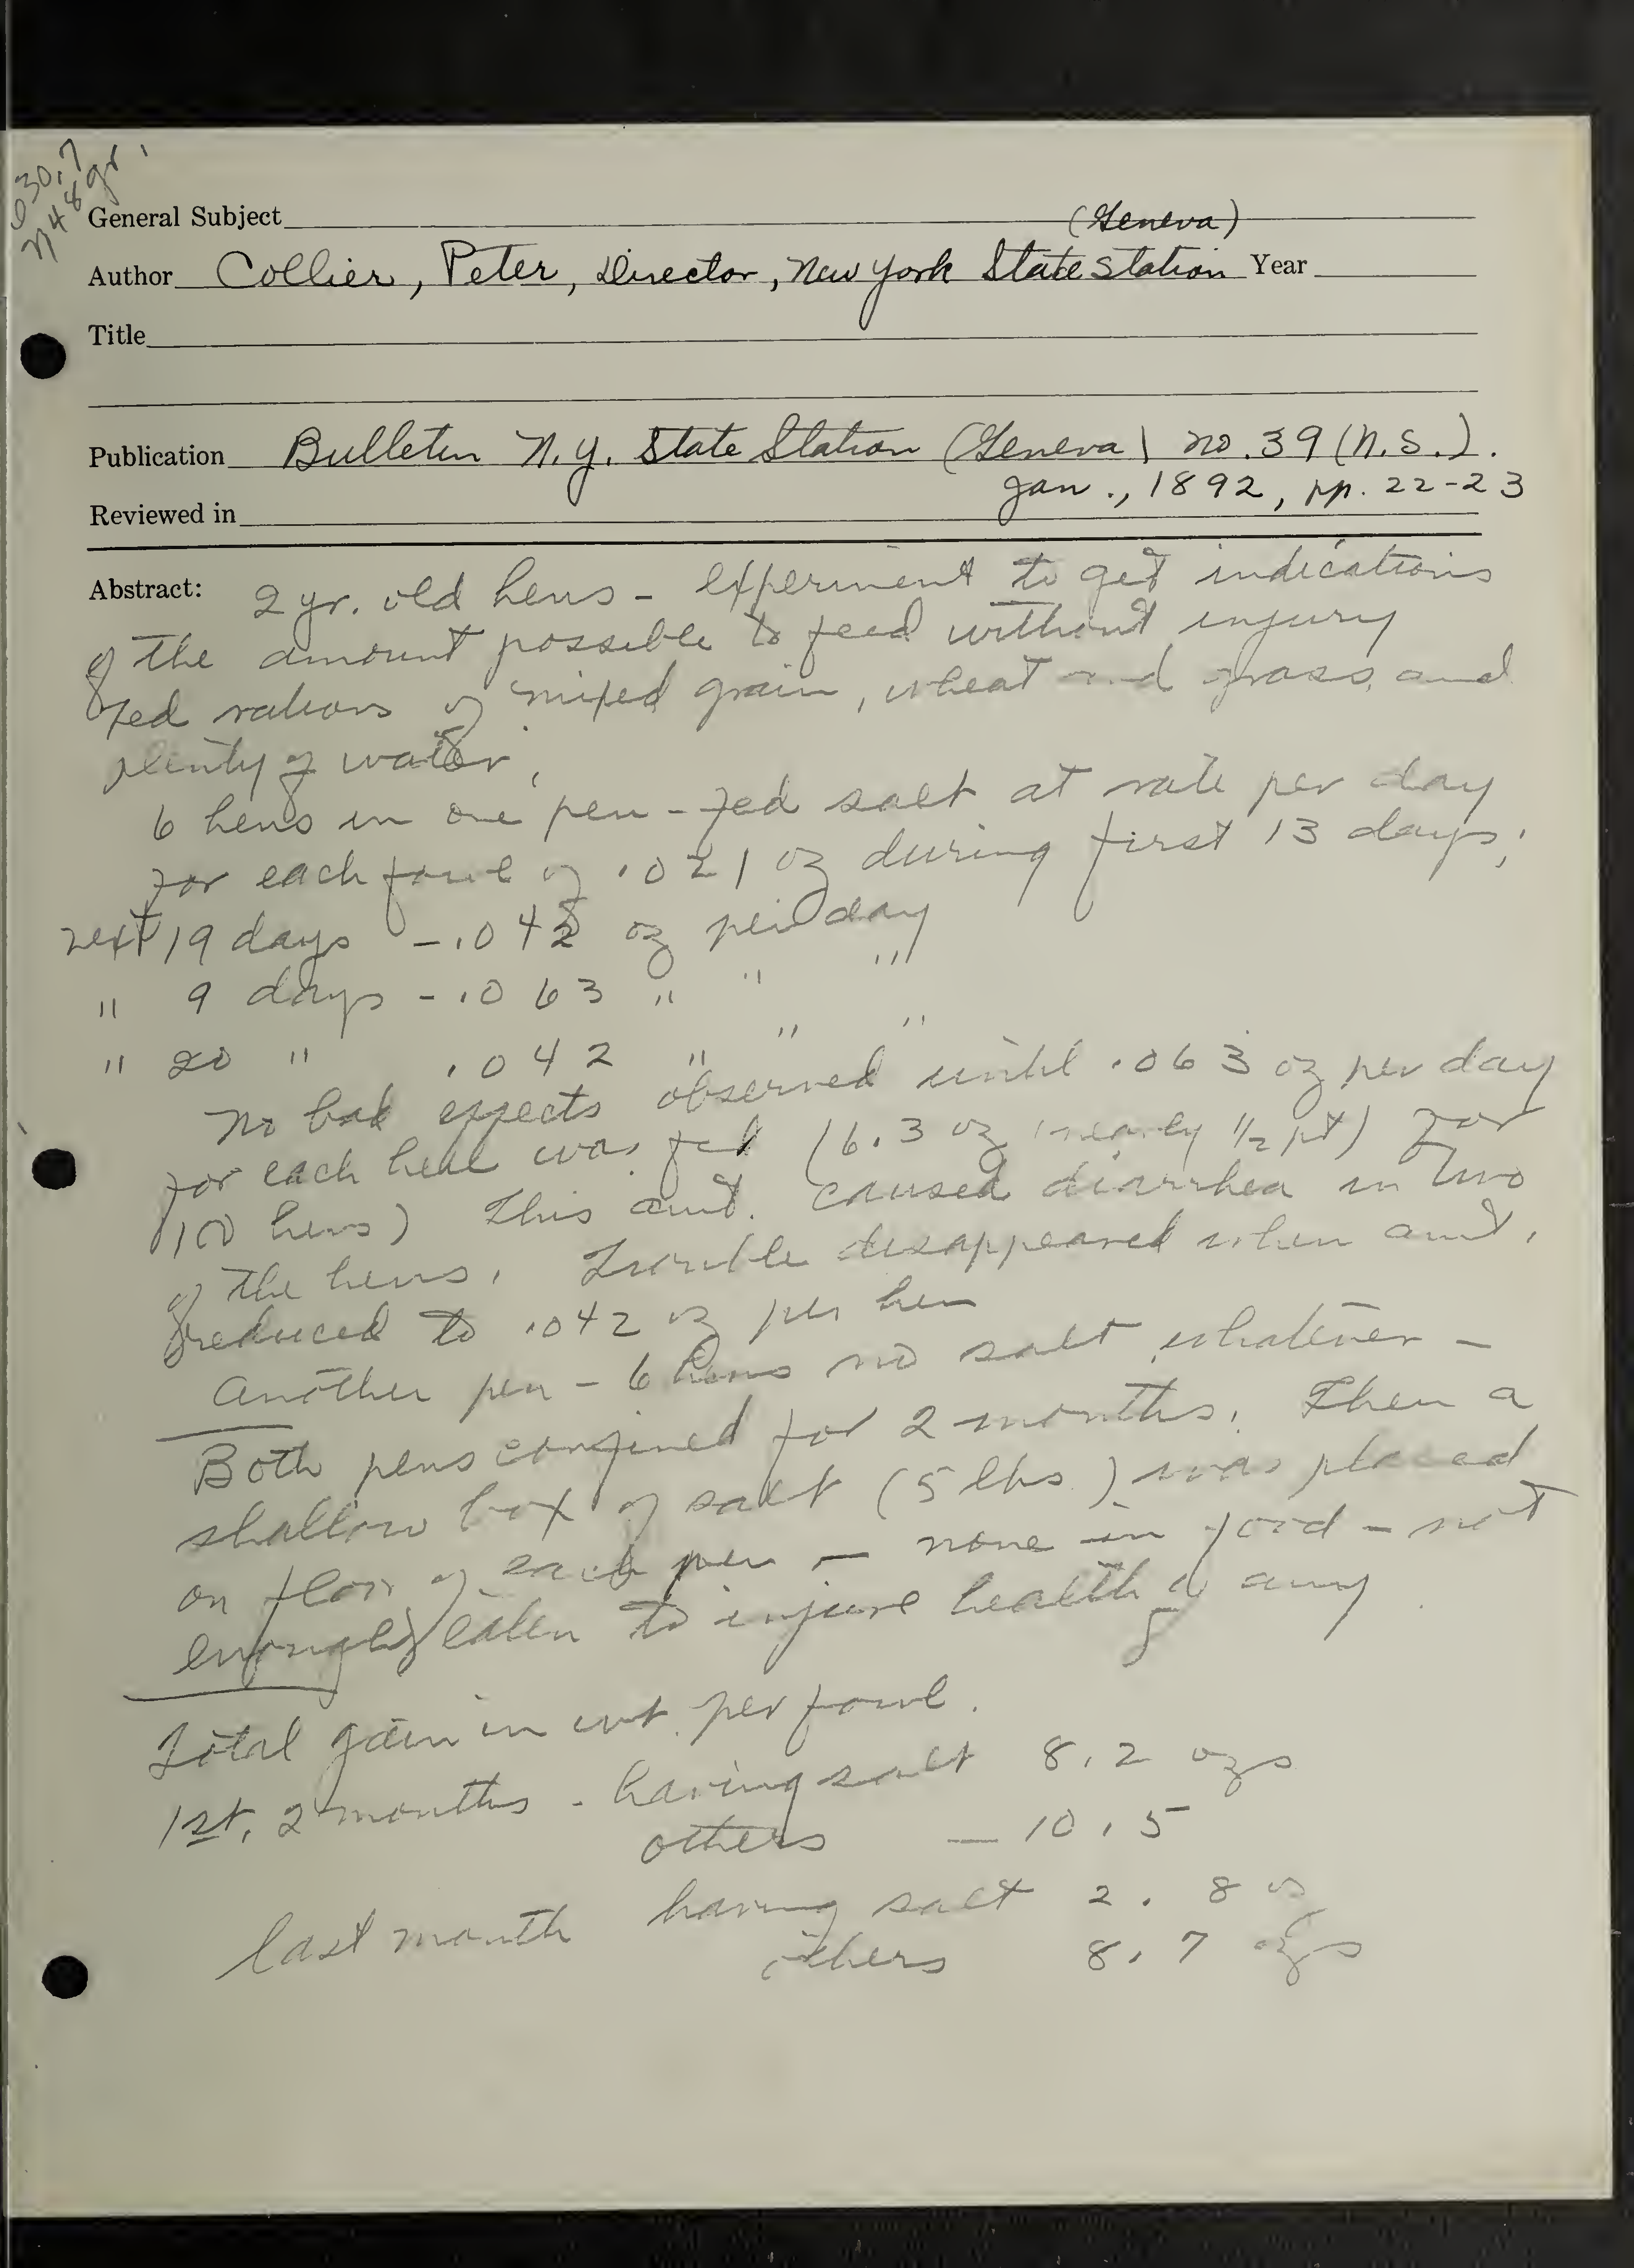 630.7
n48gr.
General Subject
(Geneva)
Author Collier, Peter, Director, New York State Station Year
Title
Publication Bulletin N.Y. State Station (Geneva) no. 39 (N.S.).
Jan., 1892, pp. 22-23
Reviewed in
Abstract: 2 yr. old hens - experiment to get indications
of the amount possible to feed without injury
fed rations of mixed grain, wheat and grass, and
plenty of water,
6 hens in one pen - fed salt at rate per day
for each fowl of .021 oz during first 13 days,
next 19 days - .042 oz per day
" 9 days - .063 " " "
" 20 " .042 " " "
No bad effects observed until .063 oz per day
for each hen was fed (6.3 oz (nearly 1/2 pt) for
100 hens) This amt. caused diarrhea in two
of the hens. Trouble disappeared when amt.
reduced to .042 oz per hen
Another pen - 6 hens no salt whatever -
Both pens confined for 2 months. Then a
shallow box of salt (5 lbs.) was placed
on floor of each pen - none in food - not
enough eaten to injure health of any
Total gain in wt. per fowl.
1st. 2 months - having salt 8.2 ozs
others - 10.5
last month having salt 2.8 oz
others 8.7 ozs